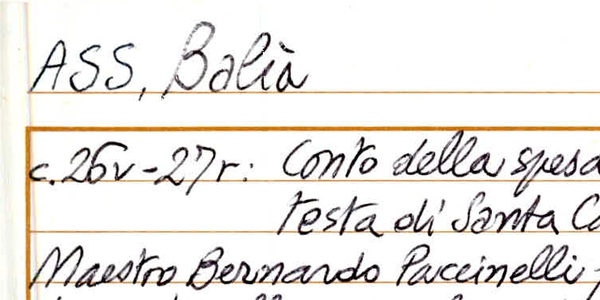 ASS, Balìa
c. 26v-27r: Conto della spesa
testa di Santa Ca
Maestro Bernardo Paccinelli